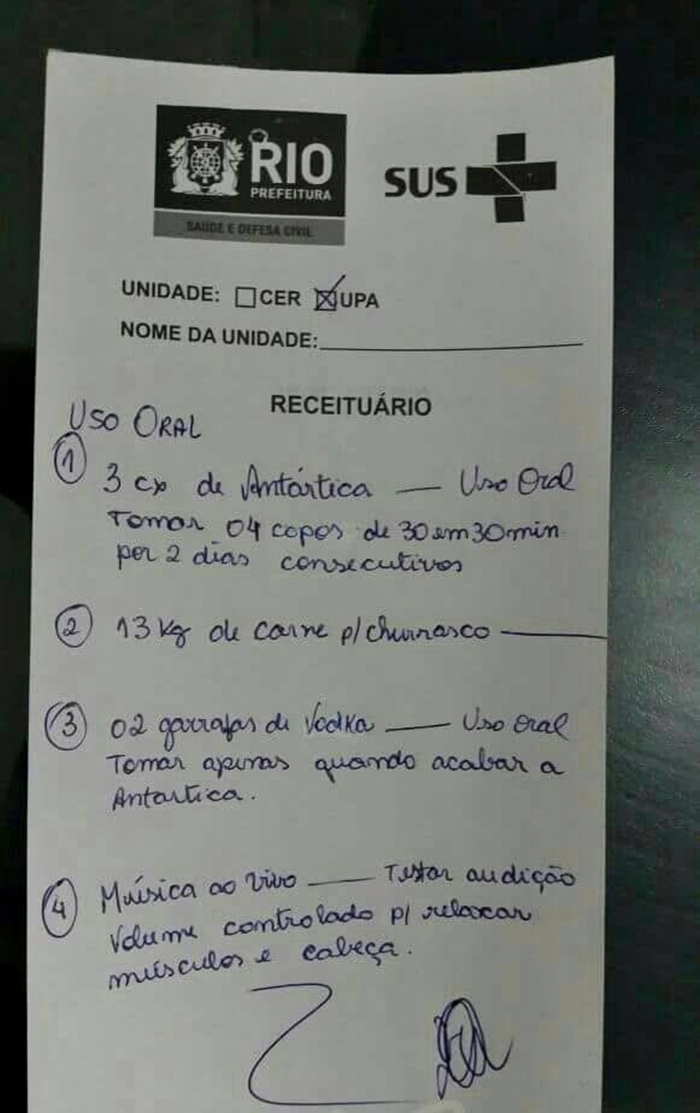 RIO
PREFEITURA
SAÚDE E DEFESA CIVIL
SUS
UNIDADE: CER UPA
NOME DA UNIDADE:
RECEITUÁRIO
USO ORAL
1 3 cx de Antártica — Uso Oral
Tomar 04 copos de 30 em 30 min
por 2 dias consecutivos
2 13 Kg de carne p/ churrasco —
3 02 garrafas de Vodka — Uso oral
Tomar apenas quando acabar a
Antartica.
4 Música ao vivo — Testar audição
Volume controlado p/ relaxar
músculos e cabeça.